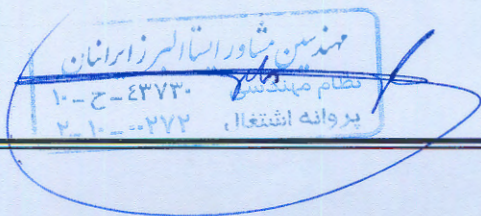 مهندسین مشاور ایستا البرز ایرانیان
نظام مهندسی ۱۰-ح-۴۳۷۳۰
پروانه اشتغال ۲-۱۰-۰۰۲۷۲